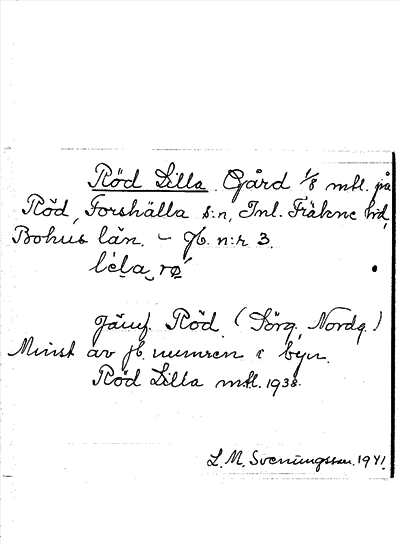 Röd Lilla Gård 1/8 mtl. på
Röd, Forshälla s:n, Inl. Fräkne hd,
Bohus län. – Jb. n:r 3.
lɩ́la rø̀
Jämf. Röd. (Sörg., Nordg.)
Minst av jb. numren i byn.
Röd Lilla mtl. 1938.
L. M. Svenungsson. 1941.